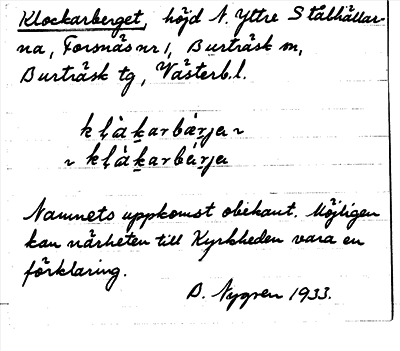 Klockarberget, höjd N. Yttre Stålhällar-
na, Forsnäs nr 1, Burträsk sn,
Burträsk tg, Västerb.l.
kḷàḵarbæ̀ṟja ~
~ kḷàḵarbæ̀ṟja
Namnets uppkomst obekant. Möjligen
kan närheten till Kyrkheden vara en
förklaring.
D. Nygren 1933.